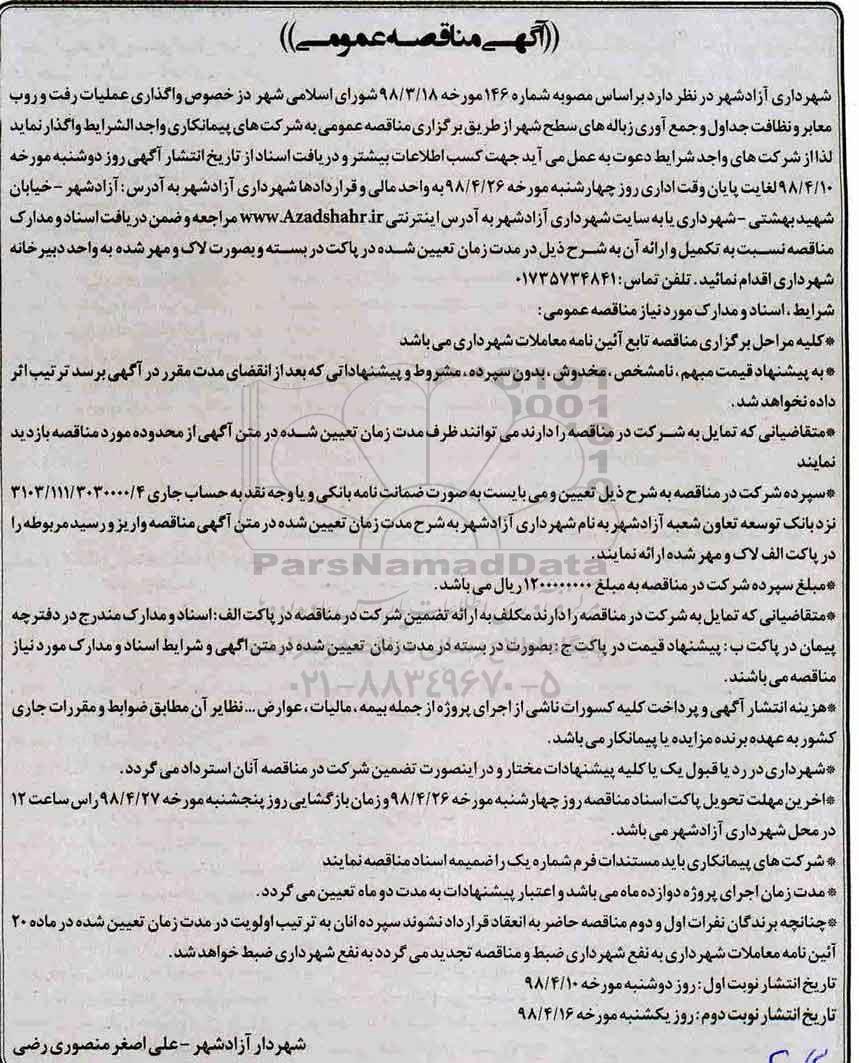 ((آگهی مناقصه عمومی))
شهرداری آزادشهر در نظر دارد براساس مصوبه شماره ۱۴۶ مورخه ۹۸/۳/۱۸ شورای اسلامی شهر دز خصوص واگذاری عملیات رفت و روب
معابر و نظافت جداول و جمع آوری زباله های سطح شهر از طریق برگزاری مناقصه عمومی به شرکت های پیمانکاری واجد الشرایط واگذار نماید
لذا از شرکت های واجد شرایط دعوت به عمل می آید جهت کسب اطلاعات بیشتر و دریافت اسناد از تاریخ انتشار آگهی روز دوشنبه مورخه
۹۸/۴/۱۰ لغایت پایان وقت اداری روز چهارشنبه مورخه ۹۸/۴/۲۶ به واحد مالی و قراردادها شهرداری آزادشهر به آدرس : آزادشهر – خیابان
شهید بهشتی – شهرداری یا به سایت شهرداری آزادشهر به آدرس اینترنتی www.Azadshahr.ir مراجعه و ضمن دریافت اسناد و مدارک
مناقصه نسبت به تکمیل و ارائه آن به شرح ذیل در مدت زمان تعیین شده در پاکت در بسته و بصورت لاک و مهر شده به واحد دبیرخانه
شهرداری اقدام نمائید . تلفن تماس : ۰۱۷۳۵۷۳۴۸۴۱
شرایط ، اسناد و مدارک مورد نیاز مناقصه عمومی :
*کلیه مراحل برگزاری مناقصه تابع آئین نامه معاملات شهرداری می باشد
* به پیشنهاد قیمت مبهم ، نامشخص ، مخدوش ، بدون سپرده ، مشروط و پیشنهاداتی که بعد از انقضای مدت مقرر در آگهی برسد ترتیب اثر
داده نخواهد شد .
*متقاضیانی که تمایل به شرکت در مناقصه را دارند می توانند ظرف مدت زمان تعیین شده در متن آگهی از محدوده مورد مناقصه بازدید
نمایند
*سپرده شرکت در مناقصه به شرح ذیل تعیین و می بایست به صورت ضمانت نامه بانکی و یا وجه نقد به حساب جاری ۳۱۰۳/۱۱۱/۳۰۳۰۰۰۰/۴
نزد بانک توسعه تعاون شعبه آزادشهر به نام شهرداری آزادشهر به شرح مدت زمان تعیین شده در متن آگهی مناقصه واریز و رسید مربوطه را
در پاکت الف لاک و مهر شده ارائه نمایند .
ParsNamadData
*مبلغ سپرده شرکت در مناقصه به مبلغ ۱۲۰۰۰۰۰۰۰۰ ریال می باشد .
*متقاضیانی که تمایل به شرکت در مناقصه را دارند مکلف به ارائه تضمین شرکت در مناقصه در پاکت الف : اسناد و مدارک مندرج در دفترچه
پیمان در پاکت ب : پیشنهاد قیمت در پاکت ج : بصورت در بسته در مدت زمان تعیین شده در متن اگهی و شرایط اسناد و مدارک مورد نیاز
مناقصه می باشند .
۰۲۱-۸۸۳۴۹۶۷۰-۵
*هزینه انتشار آگهی و پرداخت کلیه کسورات ناشی از اجرای پروژه از جمله بیمه ، مالیات ، عوارض ... نظایر آن مطابق ضوابط و مقررات جاری
کشور به عهده برنده مزایده یا پیمانکار می باشد .
*شهرداری در رد یا قبول یک یا کلیه پیشنهادات مختار و در اینصورت تضمین شرکت در مناقصه آنان استرداد می گردد .
*اخرین مهلت تحویل پاکت اسناد مناقصه روز چهارشنبه مورخه ۹۸/۴/۲۶ و زمان بازگشایی روز پنجشنبه مورخه ۹۸/۴/۲۷ راس ساعت ۱۲
در محل شهرداری آزادشهر می باشد .
*شرکت های پیمانکاری باید مستندات فرم شماره یک را ضمیمه اسناد مناقصه نمایند
* مدت زمان اجرای پروژه دوازده ماه می باشد و اعتبار پیشنهادات به مدت دو ماه تعیین می گردد .
*چنانچه برندگان نفرات اول و دوم مناقصه حاضر به انعقاد قرارداد نشوند سپرده انان به ترتیب اولویت در مدت زمان تعیین شده در ماده ۲۰
آئین نامه معاملات شهرداری به نفع شهرداری ضبط و مناقصه تجدید می گردد به نفع شهرداری ضبط خواهد شد .
تاریخ انتشار نوبت اول : روز دوشنبه مورخه ۹۸/۴/۱۰
تاریخ انتشار نوبت دوم : روز یکشنبه مورخه ۹۸/۴/۱۶
شهردار آزادشهر – علی اصغر منصوری رضی